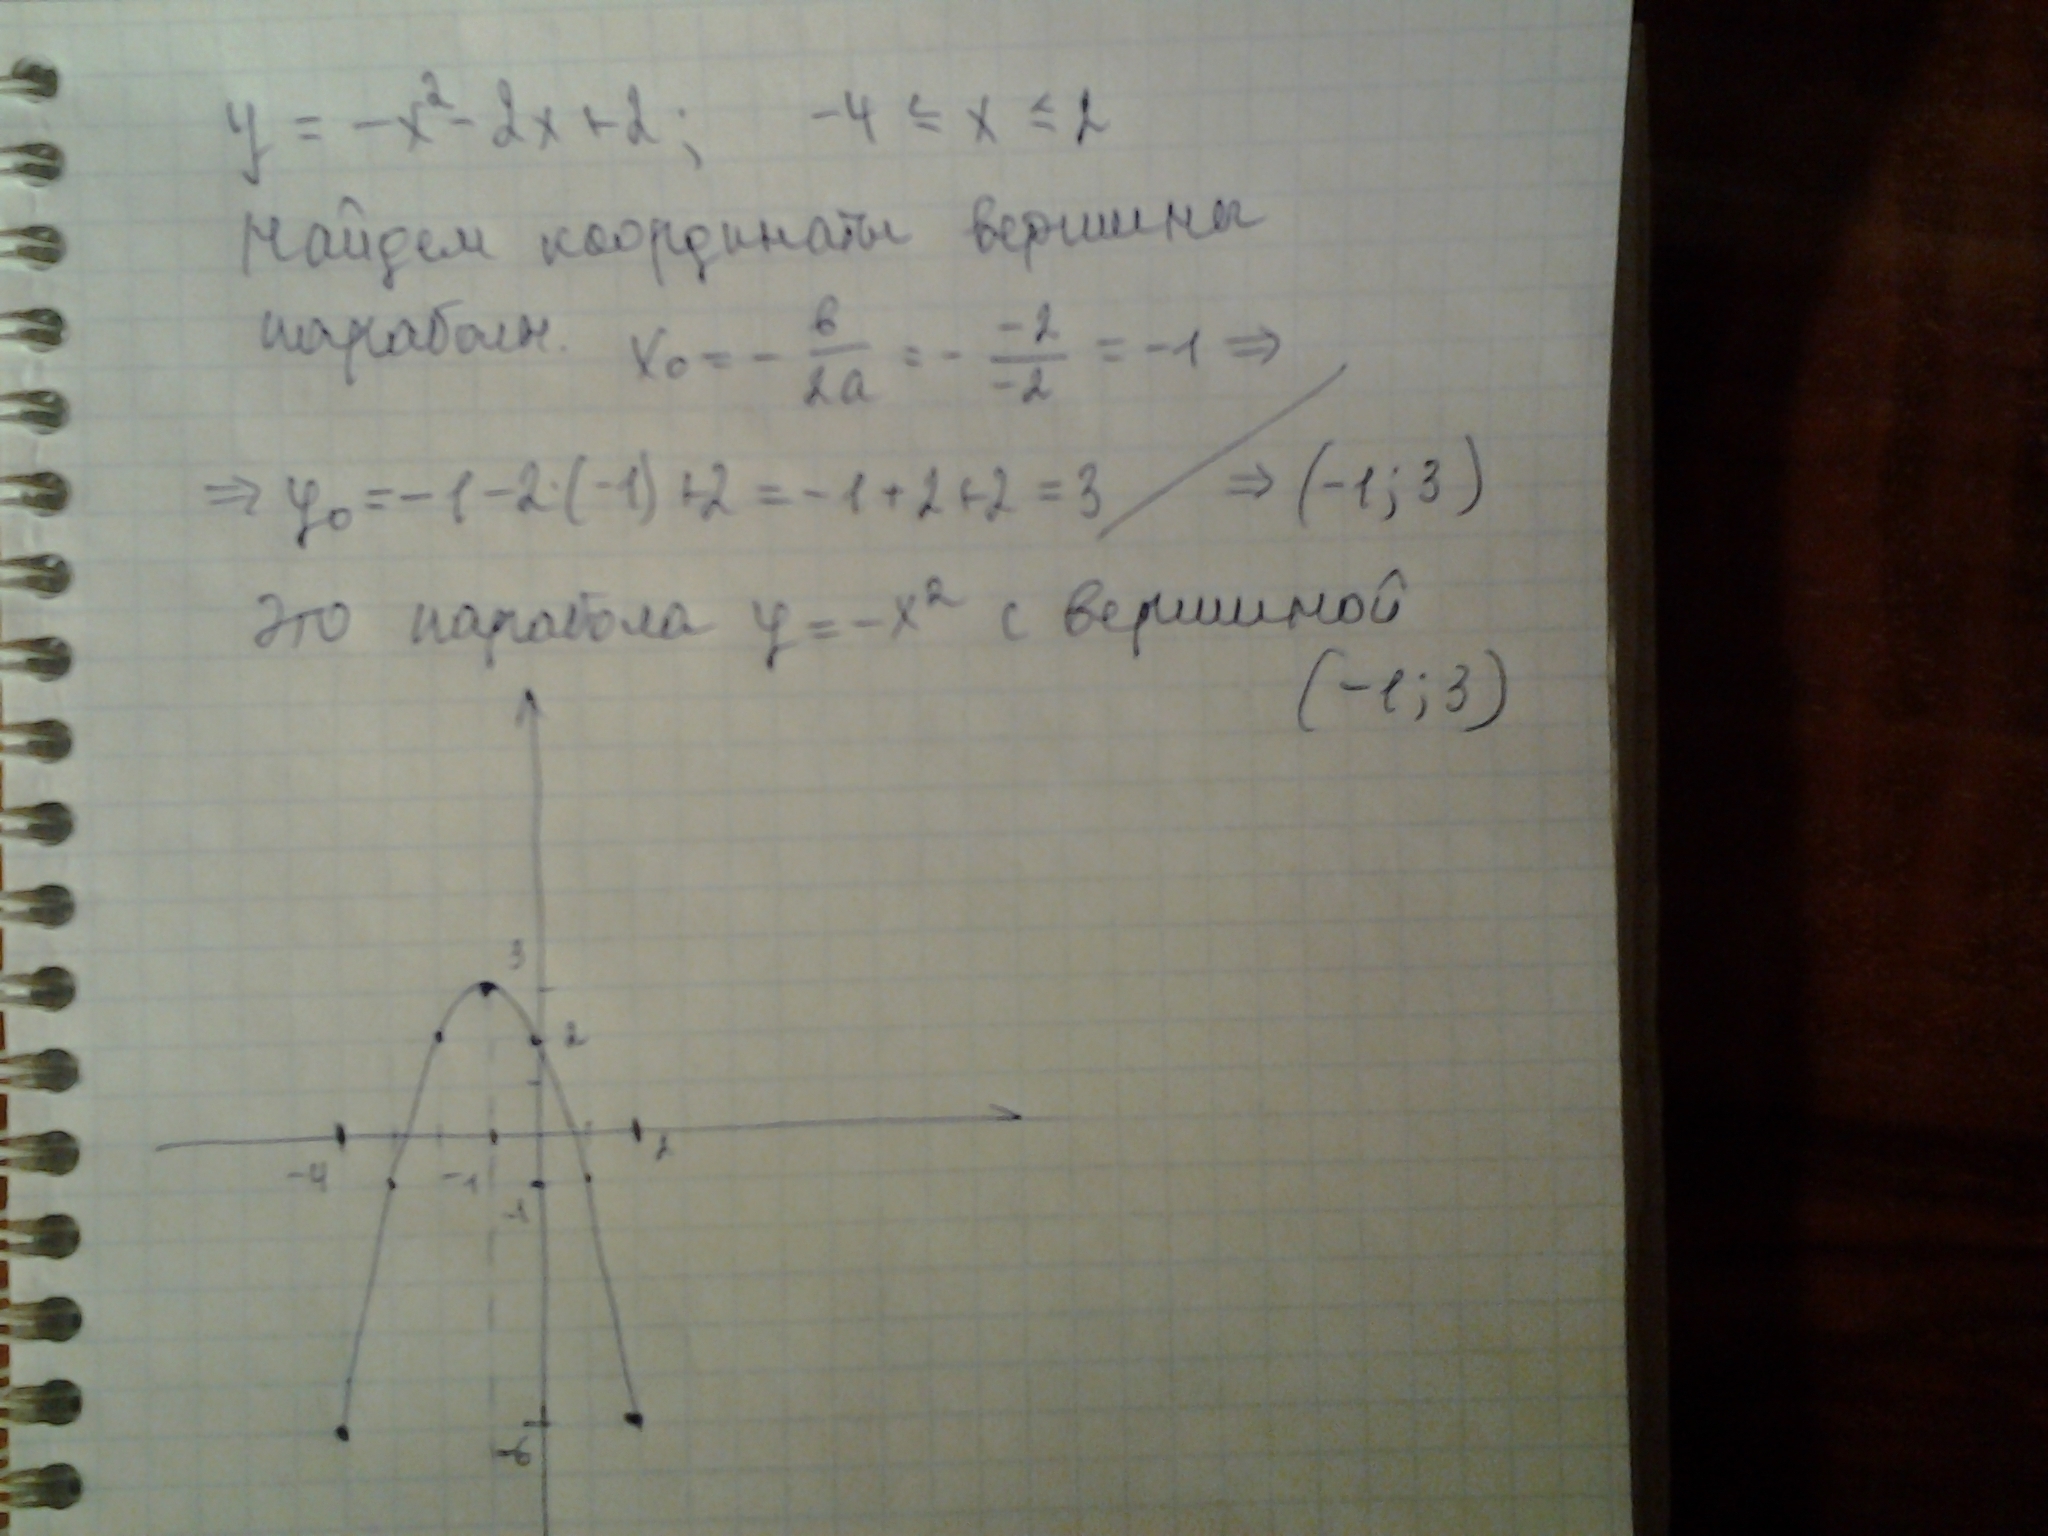 y = -x² - 2x + 2; -4 ≤ x ≤ 2
Найдем координаты вершины
параболы. x₀ = - в/2a = - -2/-2 = -1 ⇒
⇒ y₀ = -1 - 2·(-1) + 2 = -1 + 2 + 2 = 3 ⇒ (-1; 3)
Это парабола y = -x² с вершиной
(-1; 3)
3
2
-4 -1 2